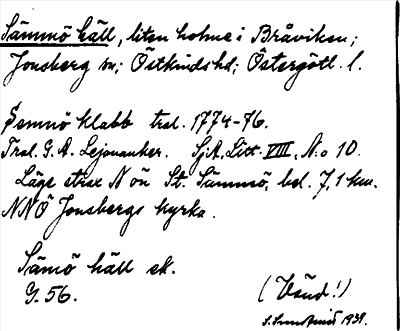 Sämmö häll, liten holme i Bråviken;
Jonsberg sn; Östkinds hd; Östergötl. l.
Semnö klabb trol. 1774-76.
Trol. G. A. Lejonanker. SjA, Litt. VIII, N:o 10.
Läge strax N ön St. Sämmsö, bel. 7,1 km.
NNÖ Jonsbergs kyrka.
Sämö häll ek.
G. 56.
(Vänd!)
1938.